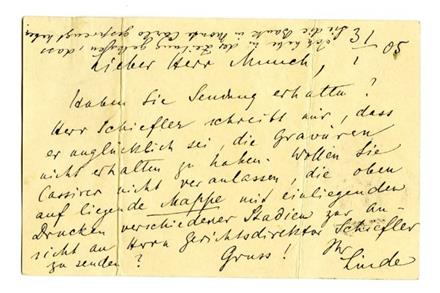 13/1 05
Ich habe in der Zeitung gelesen, dass
Sie die Bank in Monte Carlo gesprengt haben
Lieber Herr Munch,
Haben Sie Sendung erhalten?
Herr Schiefler schreibt mir, dass
er unglücklich sei, die Gravüren
nicht erhalten zu haben. Wollen Sie
Cassirer nicht veranlassen, die oben
auf liegende Mappe mit einliegenden
Drucken verschiedener Stadien zur An-
sicht an Herrn Gerichtsdirektor Schiefler
zu senden? Gruss! Ihr
Linde